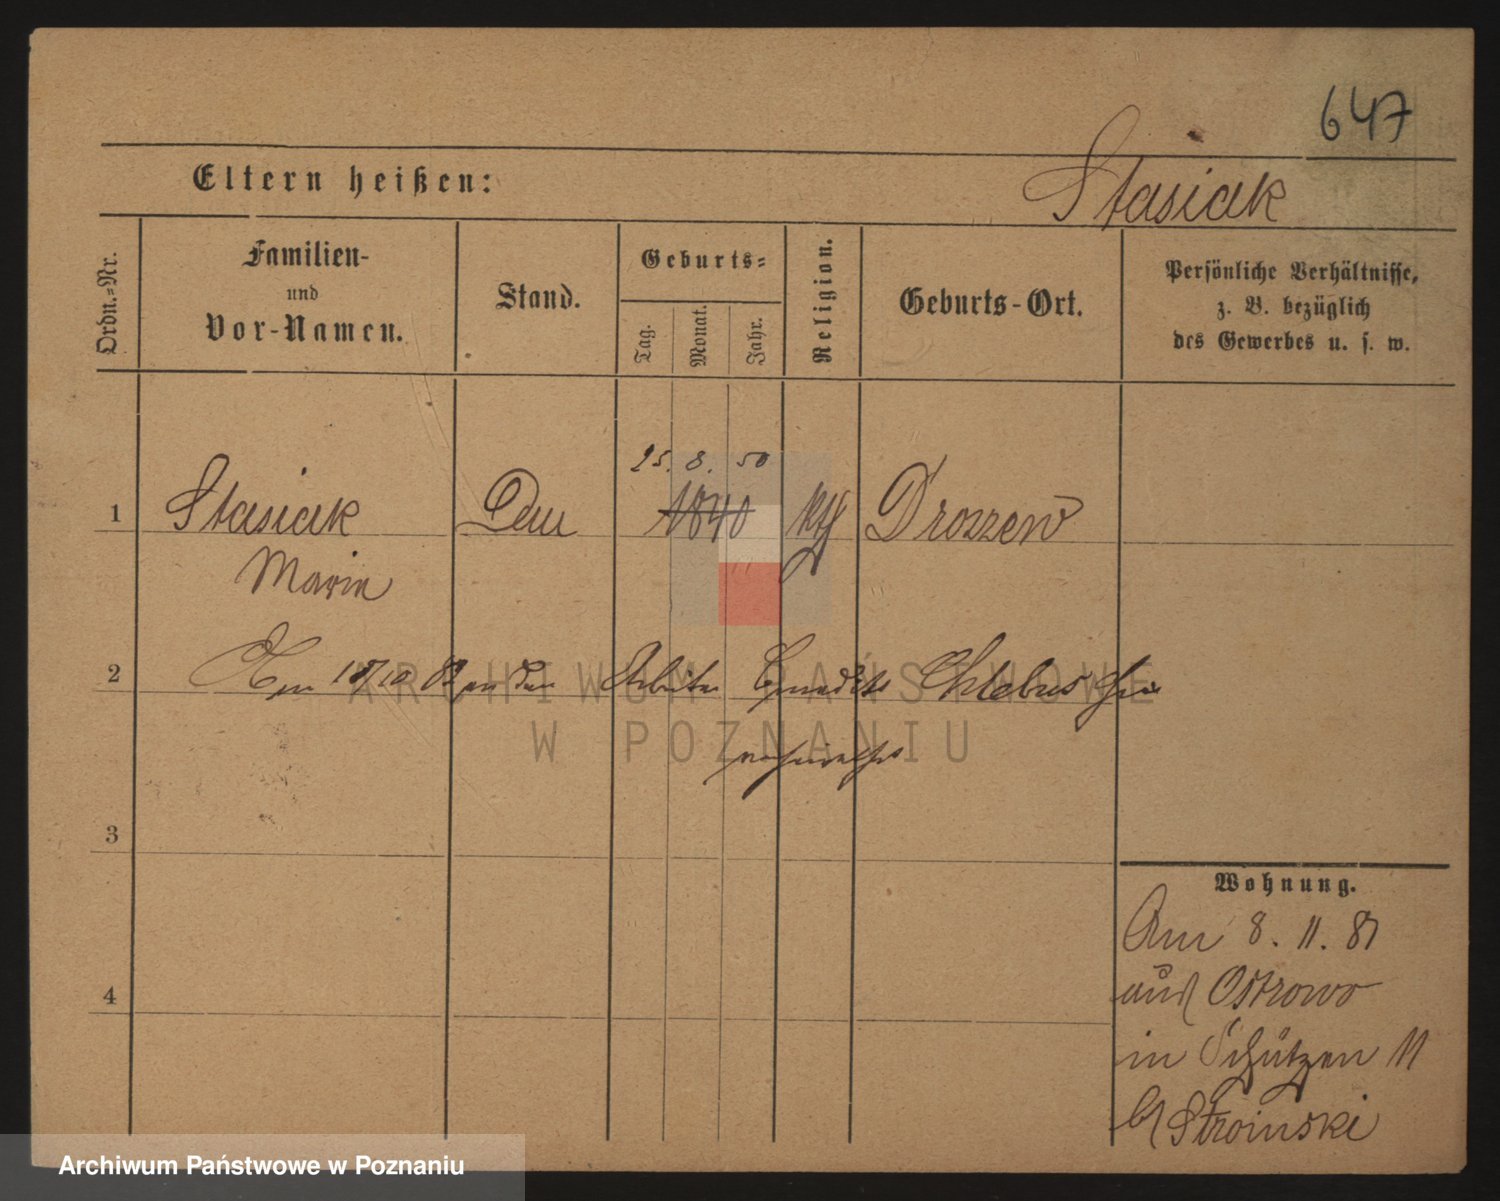 647
Eltern heißen:
Stasiak
Ordn.-Nr.
Familien-
und
Vor-Namen.
Stand.
Geburts-
Tag.
Monat.
Jahr.
Religion.
Geburts-Ort.
Persönliche Verhältnisse,
z. B. bezüglich
des Gewerbes u. s. w.
25. 8. 50
1 Stasiak 1840 kth Droszew
Marie
2 Am 18/10 an den Arbeiter Chlebus
ARCHIWUM PAŃSTWOWE
W POZNANIU
3
Wohnung.
Am 8. 11. 81
aus Ostrowo
4
in Schützen 11
b/ Stroinski
Archiwum Państwowe w Poznaniu